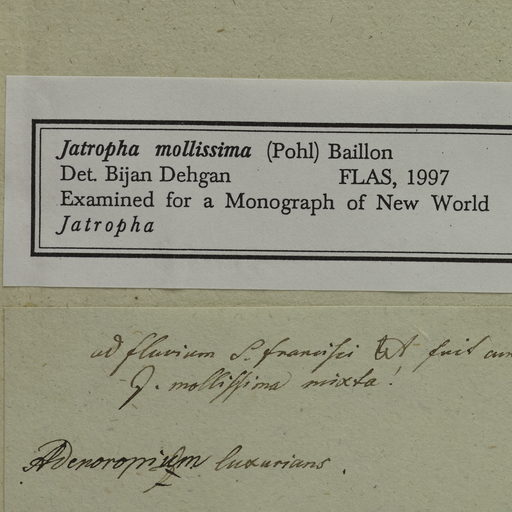 Jatropha mollissima (Pohl) Baillon
Det. Bijan Dehgan FLAS, 1997
Examined for a Monograph of New World
Jatropha
ad fluvium S. francisci fuit
J. mollissima mixta!
Adenoropium luxurians.